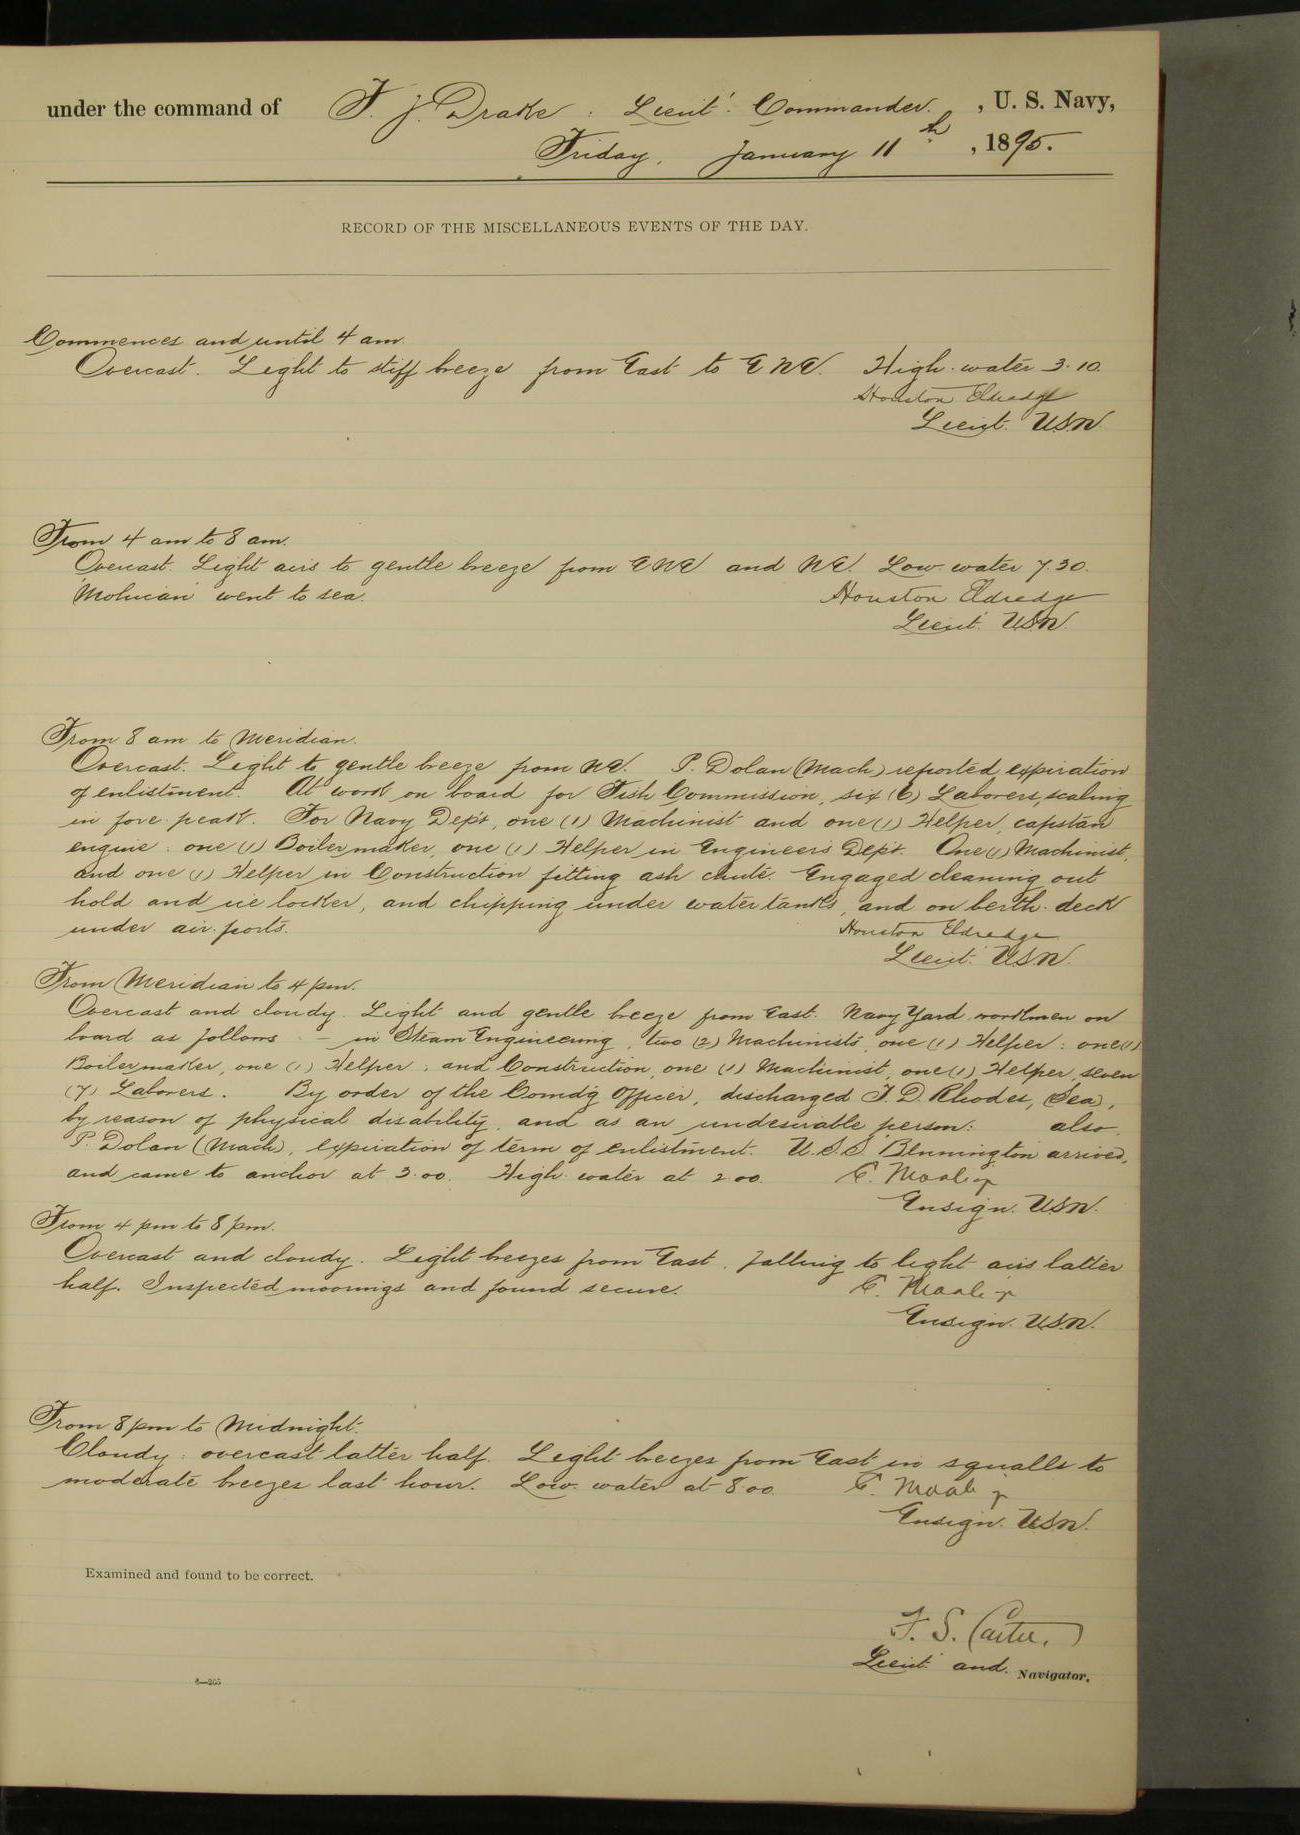 under the command of F. J. Drake, Lieut. Commander, U. S. Navy,
Friday, January 11th, 1895.
RECORD OF THE MISCELLANEOUS EVENTS OF THE DAY.
Commences and until 4 am.
Overcast. Light to stiff breeze from East to ENE. High water 3.10.
Houston Eldredge
Lieut. USN
From 4 am to 8 am.
Overcast. Light airs to gentle breeze from ENE and NE. Low water 7.30.
"Mohican" went to sea. Houston Eldredge
Lieut. USN.
From 8 am to Meridian.
Overcast. Light to gentle breeze from NE. P. Dolan (Mach) reported expiration
of enlistment. At work on board for Fish Commission, six (6) Laborers, scaling
in fore peak. For Navy Dept, one (1) Machinist and one (1) Helper, capstan
engine: one (1) Boilermaker, one (1) Helper in Engineers Dept. One (1) Machinist,
and one (1) Helper in Construction fitting ash chute. Engaged cleaning out
hold and ice locker, and chipping under water tanks, and on berth deck
under air ports. Houston Eldredge
Lieut. USN.
From Meridian to 4 pm.
Overcast and cloudy. Light and gentle breeze from East. Navy Yard workmen on
board as follows:- in Steam Engineering, two (2) Machinists, one (1) Helper: one (1)
Boilermaker, one (1) Helper; and Construction, one (1) Machinist, one (1) Helper, seven
(7) Laborers. By order of the Comdg Officer, discharged T. D. Rhodes, (Sea),
by reason of physical disability, and as an undesirable person: also,
P. Dolan (Mach), expiration of term of enlistment. U.S.S. Bennington arrived,
and came to anchor at 3.00. High water at 2.00. E. Moale jr
Ensign. USN.
From 4 pm to 8 pm.
Overcast and cloudy. Light breezes from East, falling to light airs latter
half. Inspected moorings and found secure. E. Moale jr
Ensign. USN.
From 8 pm to Midnight.
Cloudy: overcast latter half. Light breezes from East in squalls to
moderate breezes last hour. Low water at 8.00. E. Moale jr
Ensign. USN.
Examined and found to be correct.
F. S. Carter,
Lieut. and Navigator.
6—205